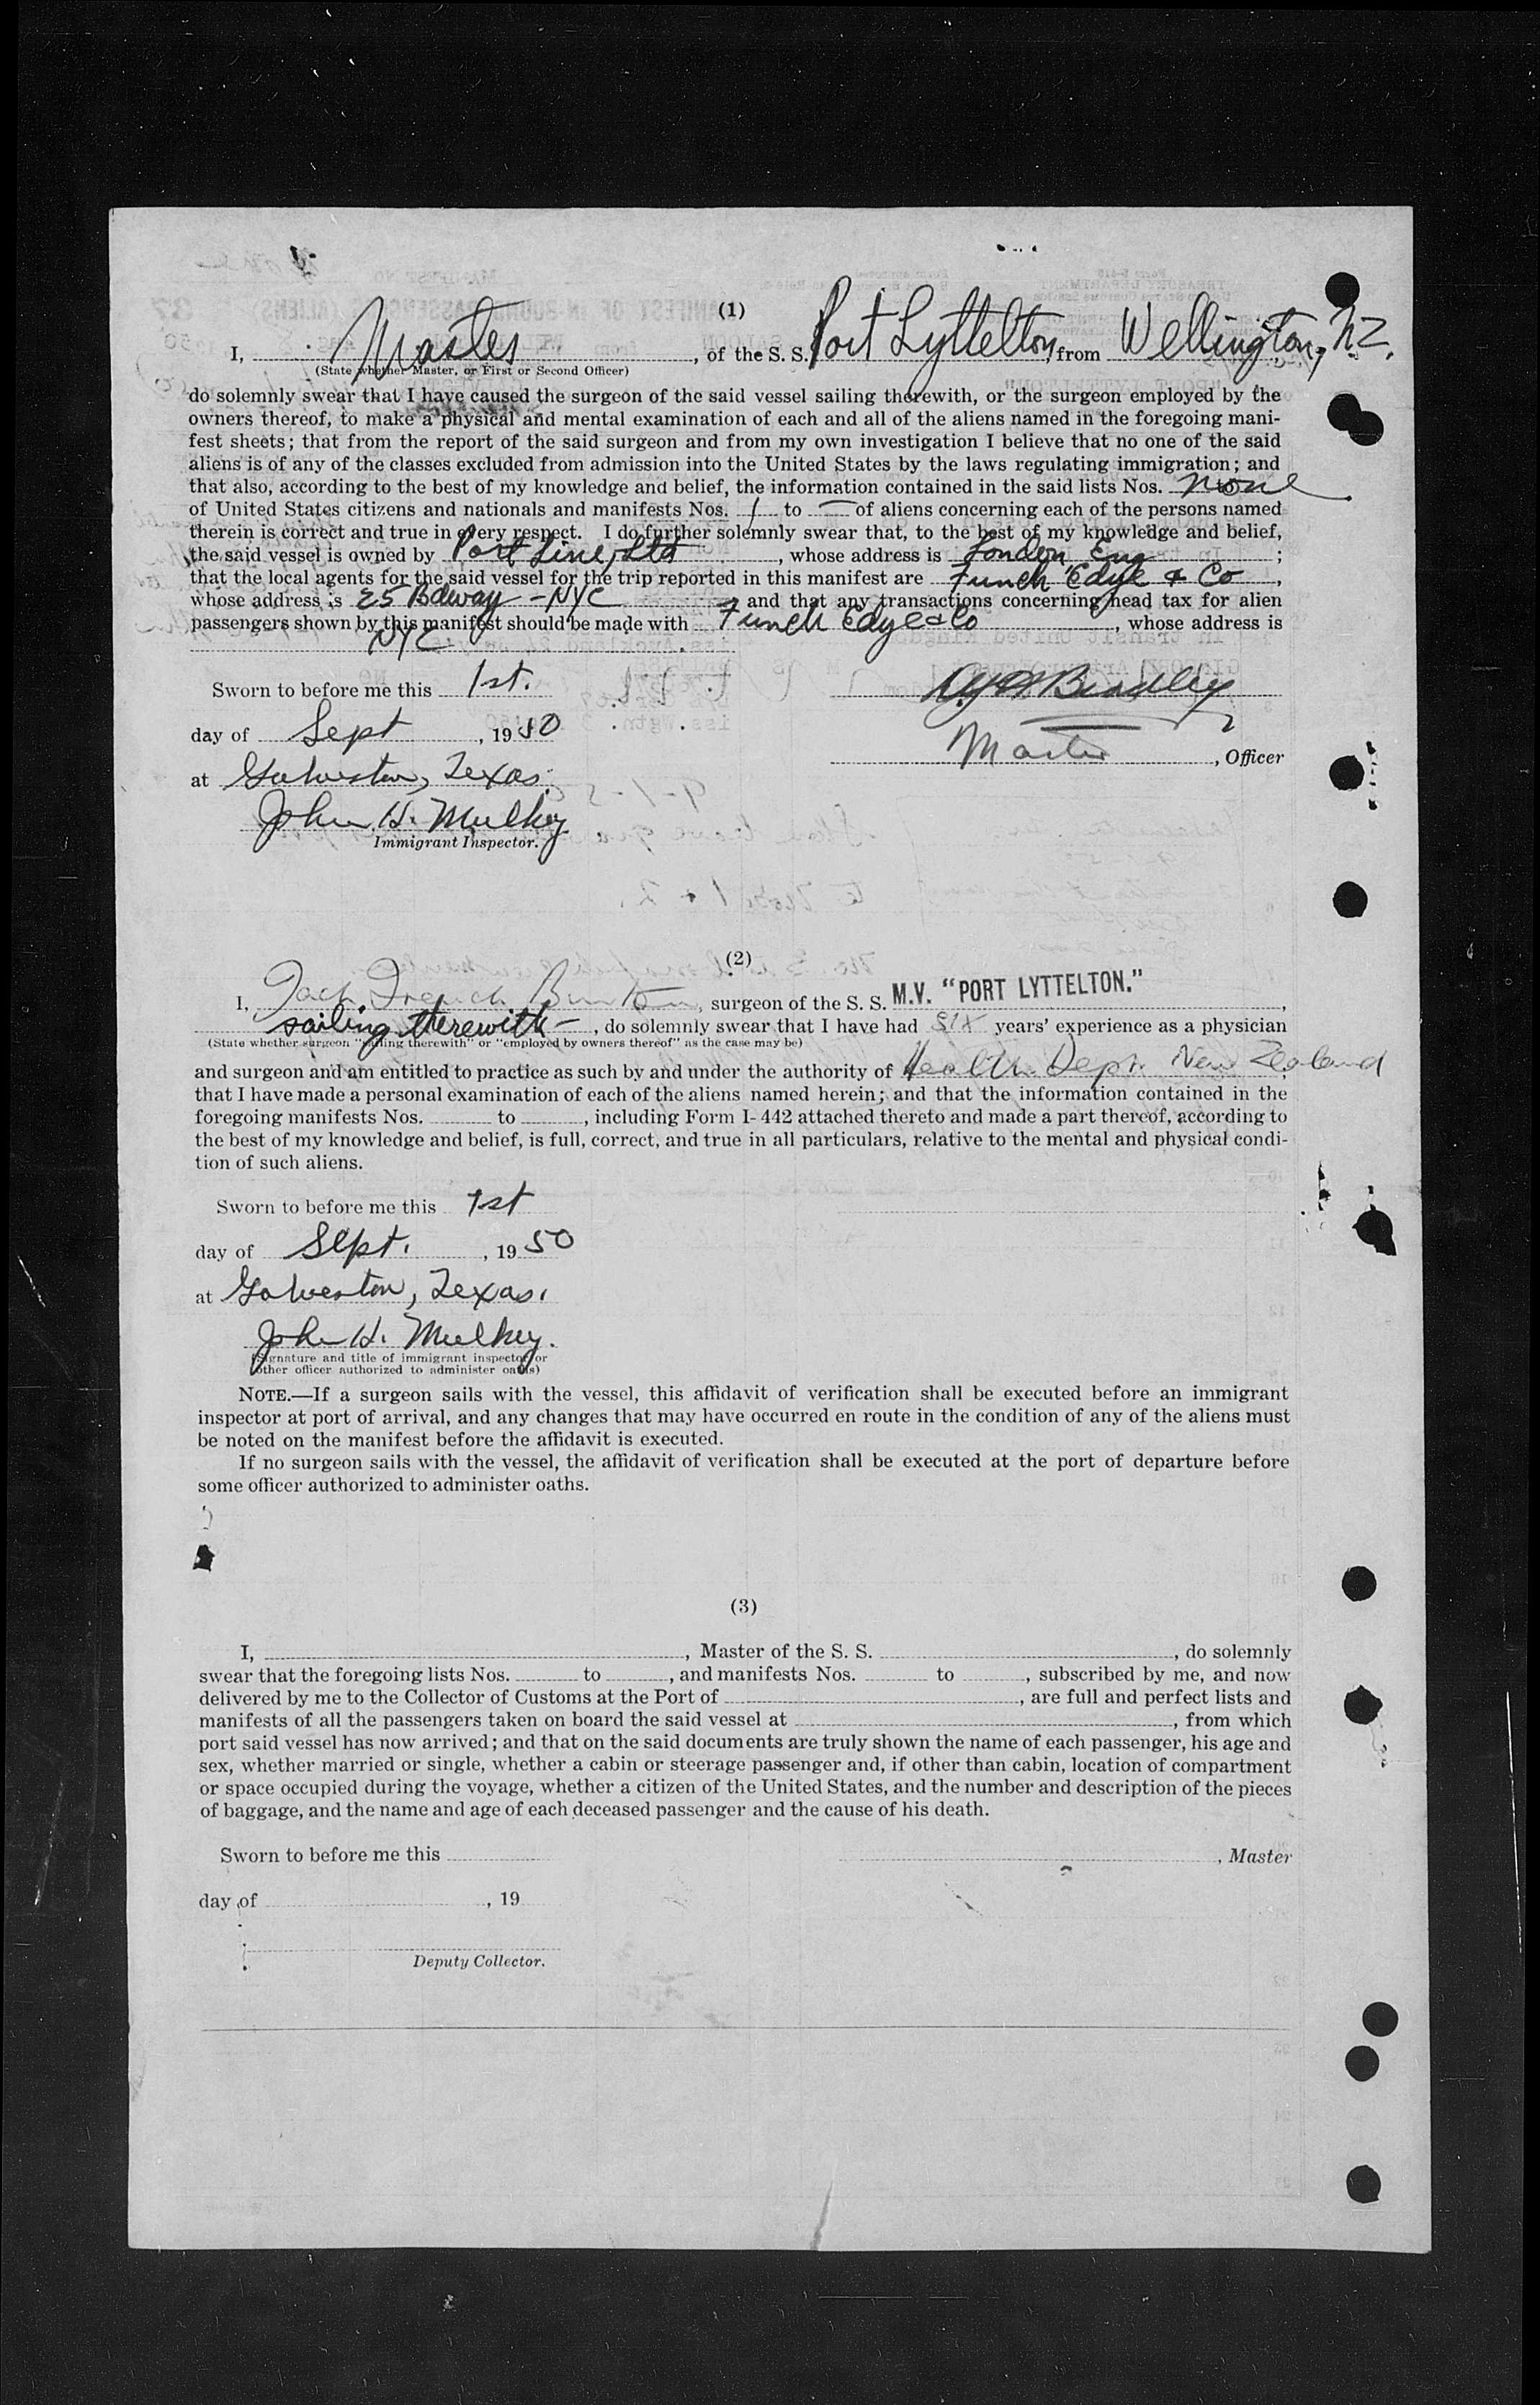 (1)
I, Master, of the S. S. Port Lyttelton, from Wellington, N.Z.
(State whether Master, or First or Second Officer)
do solemnly swear that I have caused the surgeon of the said vessel sailing therewith, or the surgeon employed by the
owners thereof, to make a physical and mental examination of each and all of the aliens named in the foregoing mani-
fest sheets; that from the report of the said surgeon and from my own investigation I believe that no one of the said
aliens is of any of the classes excluded from admission into the United States by the laws regulating immigration; and
that also, according to the best of my knowledge and belief, the information contained in the said lists Nos. none
of United States citizens and nationals and manifests Nos. 1 to — of aliens concerning each of the persons named
therein is correct and true in every respect. I do further solemnly swear that, to the best of my knowledge and belief,
the said vessel is owned by Port Line, Ltd, whose address is London, Eng;
that the local agents for the said vessel for the trip reported in this manifest are Funch Edye & Co,
whose address is 25 Bdway - NYC, and that any transactions concerning head tax for alien
passengers shown by this manifest should be made with Funch Edye & Co, whose address is
NYC.
Sworn to before me this 1st. Bradley
day of Sept, 1950
Master, Officer
at Galveston, Texas.
John H. Mulkey
Immigrant Inspector.
(2)
I, Jack French Burton, surgeon of the S. S. M.V. "PORT LYTTELTON.",
sailing therewith —, do solemnly swear that I have had six years' experience as a physician
(State whether surgeon "sailing therewith" or "employed by owners thereof" as the case may be)
and surgeon and am entitled to practice as such by and under the authority of Health Dept. New Zealand
that I have made a personal examination of each of the aliens named herein; and that the information contained in the
foregoing manifests Nos. to , including Form I-442 attached thereto and made a part thereof, according to
the best of my knowledge and belief, is full, correct, and true in all particulars, relative to the mental and physical condi-
tion of such aliens.
Sworn to before me this 1st
day of Sept., 1950
at Galveston, Texas.
John H. Mulkey.
(Signature and title of immigrant inspector or
other officer authorized to administer oaths)
NOTE.—If a surgeon sails with the vessel, this affidavit of verification shall be executed before an immigrant
inspector at port of arrival, and any changes that may have occurred en route in the condition of any of the aliens must
be noted on the manifest before the affidavit is executed.
If no surgeon sails with the vessel, the affidavit of verification shall be executed at the port of departure before
some officer authorized to administer oaths.
(3)
I, , Master of the S. S. , do solemnly
swear that the foregoing lists Nos. to , and manifests Nos. to , subscribed by me, and now
delivered by me to the Collector of Customs at the Port of , are full and perfect lists and
manifests of all the passengers taken on board the said vessel at , from which
port said vessel has now arrived; and that on the said documents are truly shown the name of each passenger, his age and
sex, whether married or single, whether a cabin or steerage passenger and, if other than cabin, location of compartment
or space occupied during the voyage, whether a citizen of the United States, and the number and description of the pieces
of baggage, and the name and age of each deceased passenger and the cause of his death.
Sworn to before me this , Master
day of , 19
Deputy Collector.